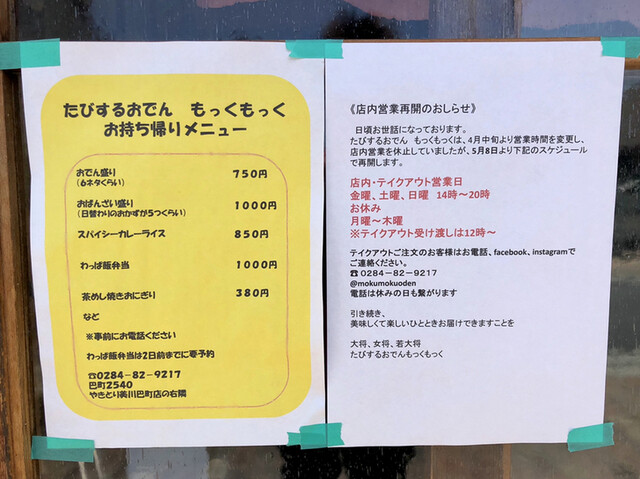 たびするおでん もっくもっく
お持ち帰りメニュー
おでん盛り 750円
(6ネタくらい)
おばんざい盛り 1000円
(日替わりのおかずが5つくらい)
スパイシーカレーライス 850円
わっぱ飯弁当 1000円
茶めし焼きおにぎり 380円
など
※事前にお電話ください
わっぱ飯弁当は2日前までに要予約
☎0284-82-9217
巴町2540
やきとり美川巴町店の右隣
《店内営業再開のおしらせ》
日頃お世話になっております。
たびするおでん もっくもっくは、4月中旬より営業時間を変更し、
店内営業を休止していましたが、5月8日より下記のスケジュール
で再開します。
店内・テイクアウト営業日
金曜、土曜、日曜 14時~20時
お休み
月曜~木曜
※テイクアウト受け渡しは12時~
テイクアウトご注文のお客様はお電話、facebook、instagramで
ご連絡ください。
☎0284-82-9217
@mokumokuoden
電話は休みの日も繋がります
引き続き、
美味しくて楽しいひとときお届けできますことを
大将、女将、若大将
たびするおでんもっくもっく